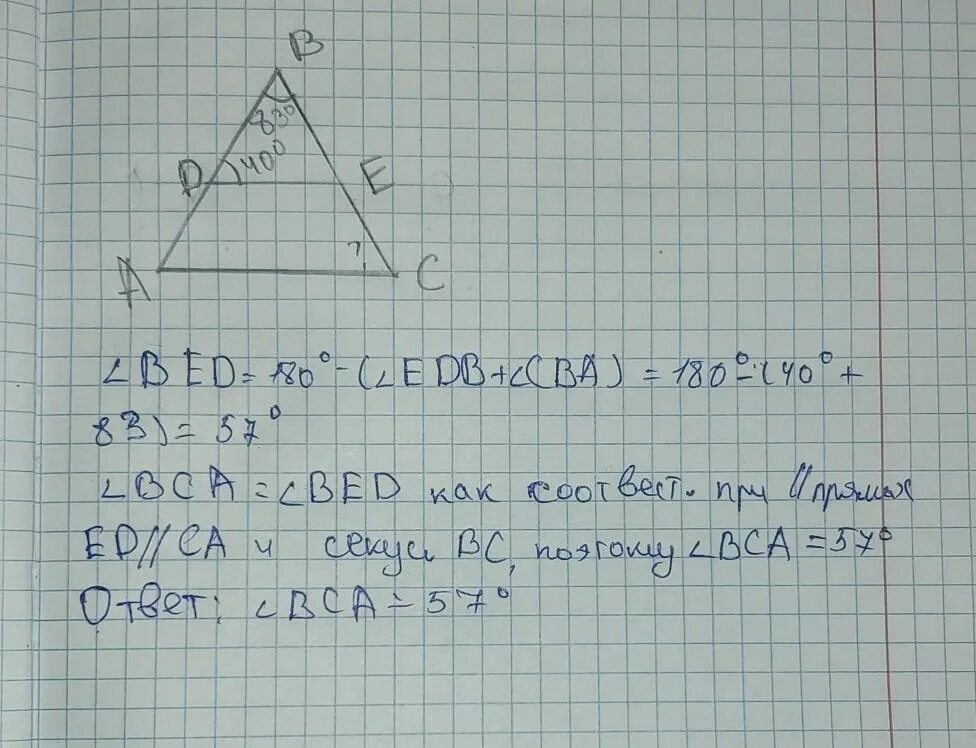 B
83°
40°
D
E
?
A
C
∠BED=180°-(∠EDB+∠CBA)=180°-(40°+
83)=57°
∠BCA=∠BED как соотвест. при // прямых
ED//CA и секущ BC, поэтому ∠BCA=57°
Ответ: ∠BCA=57°